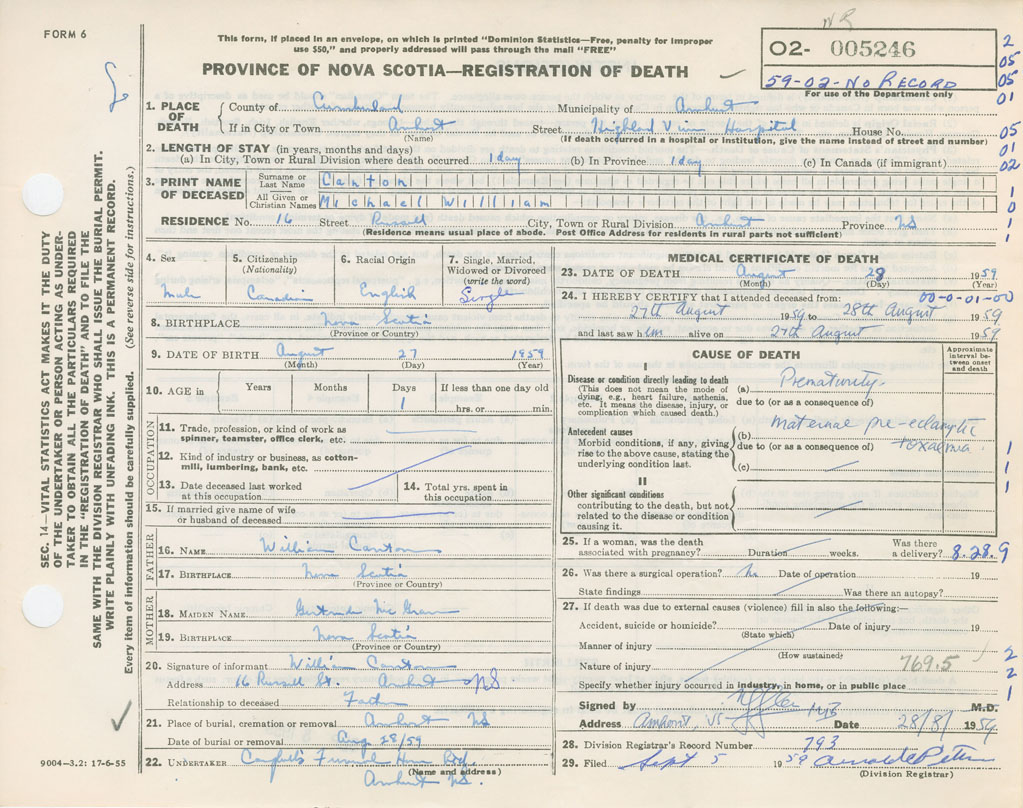 FORM 6
This form, if placed in an envelope, on which is printed "Dominion Statistics—Free, penalty for improper
use $50," and properly addressed will pass through the mail "FREE"
PROVINCE OF NOVA SCOTIA—REGISTRATION OF DEATH
NR
O2- 005246
59-02-No Record
For use of the Department only
2
05
05
01
05
01
02
1
0
1
1
SEC. 14—VITAL STATISTICS ACT MAKES IT THE DUTY
OF THE UNDERTAKER OR PERSON ACTING AS UNDER-
TAKER TO OBTAIN ALL THE PARTICULARS REQUIRED
IN THE "REGISTRATION OF DEATH" AND TO FILE THE
SAME WITH THE DIVISION REGISTRAR WHO SHALL ISSUE THE BURIAL PERMIT.
WRITE PLAINLY WITH UNFADING INK. THIS IS A PERMANENT RECORD.
Every item of information should be carefully supplied. (See reverse side for instructions.)
1. PLACE OF DEATH
County of Cumberland Municipality of Amherst
If in City or Town Amherst Street Highland View Hospital House No.
(Name) (If death occurred in a hospital or institution, give the name instead of street and number)
2. LENGTH OF STAY (in years, months and days)
(a) In City, Town or Rural Division where death occurred 1 day (b) In Province 1 day (c) In Canada (if immigrant)
3. PRINT NAME OF DECEASED
Surname or Last Name Canton
All Given or Christian Names Michael William
RESIDENCE No. 16 Street Russell City, Town or Rural Division Amherst Province NS
(Residence means usual place of abode. Post Office Address for residents in rural parts not sufficient)
4. Sex Male
5. Citizenship (Nationality) Canadian
6. Racial Origin English
7. Single, Married, Widowed or Divorced (write the word) Single
8. BIRTHPLACE Nova Scotia
(Province or Country)
9. DATE OF BIRTH August 27 1959
(Month) (Day) (Year)
10. AGE in Years Months Days 1 If less than one day old
hrs. or min.
OCCUPATION
11. Trade, profession, or kind of work as
spinner, teamster, office clerk, etc.
12. Kind of industry or business, as cotton-
mill, lumbering, bank, etc.
13. Date deceased last worked
at this occupation
14. Total yrs. spent in
this occupation
15. If married give name of wife
or husband of deceased
FATHER
16. NAME William Canton
17. BIRTHPLACE Nova Scotia
(Province or Country)
MOTHER
18. MAIDEN NAME Gertrude
19. BIRTHPLACE Nova Scotia
(Province or Country)
20. Signature of informant William Canton
Address 16 Russell St. Amherst NS
Relationship to deceased Father
21. Place of burial, cremation or removal Amherst NS
Date of burial or removal Aug 28/59
22. UNDERTAKER Campbell's Funeral Home
(Name and address)
Amherst NS.
9004-3.2: 17-6-55
MEDICAL CERTIFICATE OF DEATH
23. DATE OF DEATH August 28 1959
(Month) (Day) (Year)
00-0-01-00
24. I HEREBY CERTIFY that I attended deceased from:
27th August 1959 to 28th August 1959
and last saw him alive on 27th August 1959
CAUSE OF DEATH
Approximate interval between onset and death
I
Disease or condition directly leading to death
(This does not mean the mode of
dying, e.g., heart failure, asthenia,
etc. It means the disease, injury, or
complication which caused death.)
(a) Prematurity
due to (or as a consequence of)
Antecedent causes
Morbid conditions, if any, giving
rise to the above cause, stating the
underlying condition last.
(b) Maternal pre-eclamptic toxaemia
due to (or as a consequence of)
(c)
1
1
1
II
Other significant conditions
contributing to the death, but not
related to the disease or condition
causing it.
25. If a woman, was the death
associated with pregnancy? Duration weeks. Was there
a delivery? 8.28.9
26. Was there a surgical operation? No Date of operation 19
State findings Was there an autopsy?
27. If death was due to external causes (violence) fill in also the following:—
Accident, suicide or homicide? Date of injury 19
(State which)
Manner of injury
(How sustained)
Nature of injury 769.5
Specify whether injury occurred in industry, in home, or in public place
2
2
1
Signed by M.D.
Address Amherst, NS Date 28/8/ 1959
28. Division Registrar's Record Number 793
29. Filed Sept 5 1959
(Division Registrar)